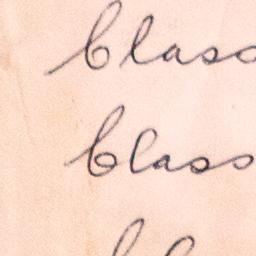 Class
Class